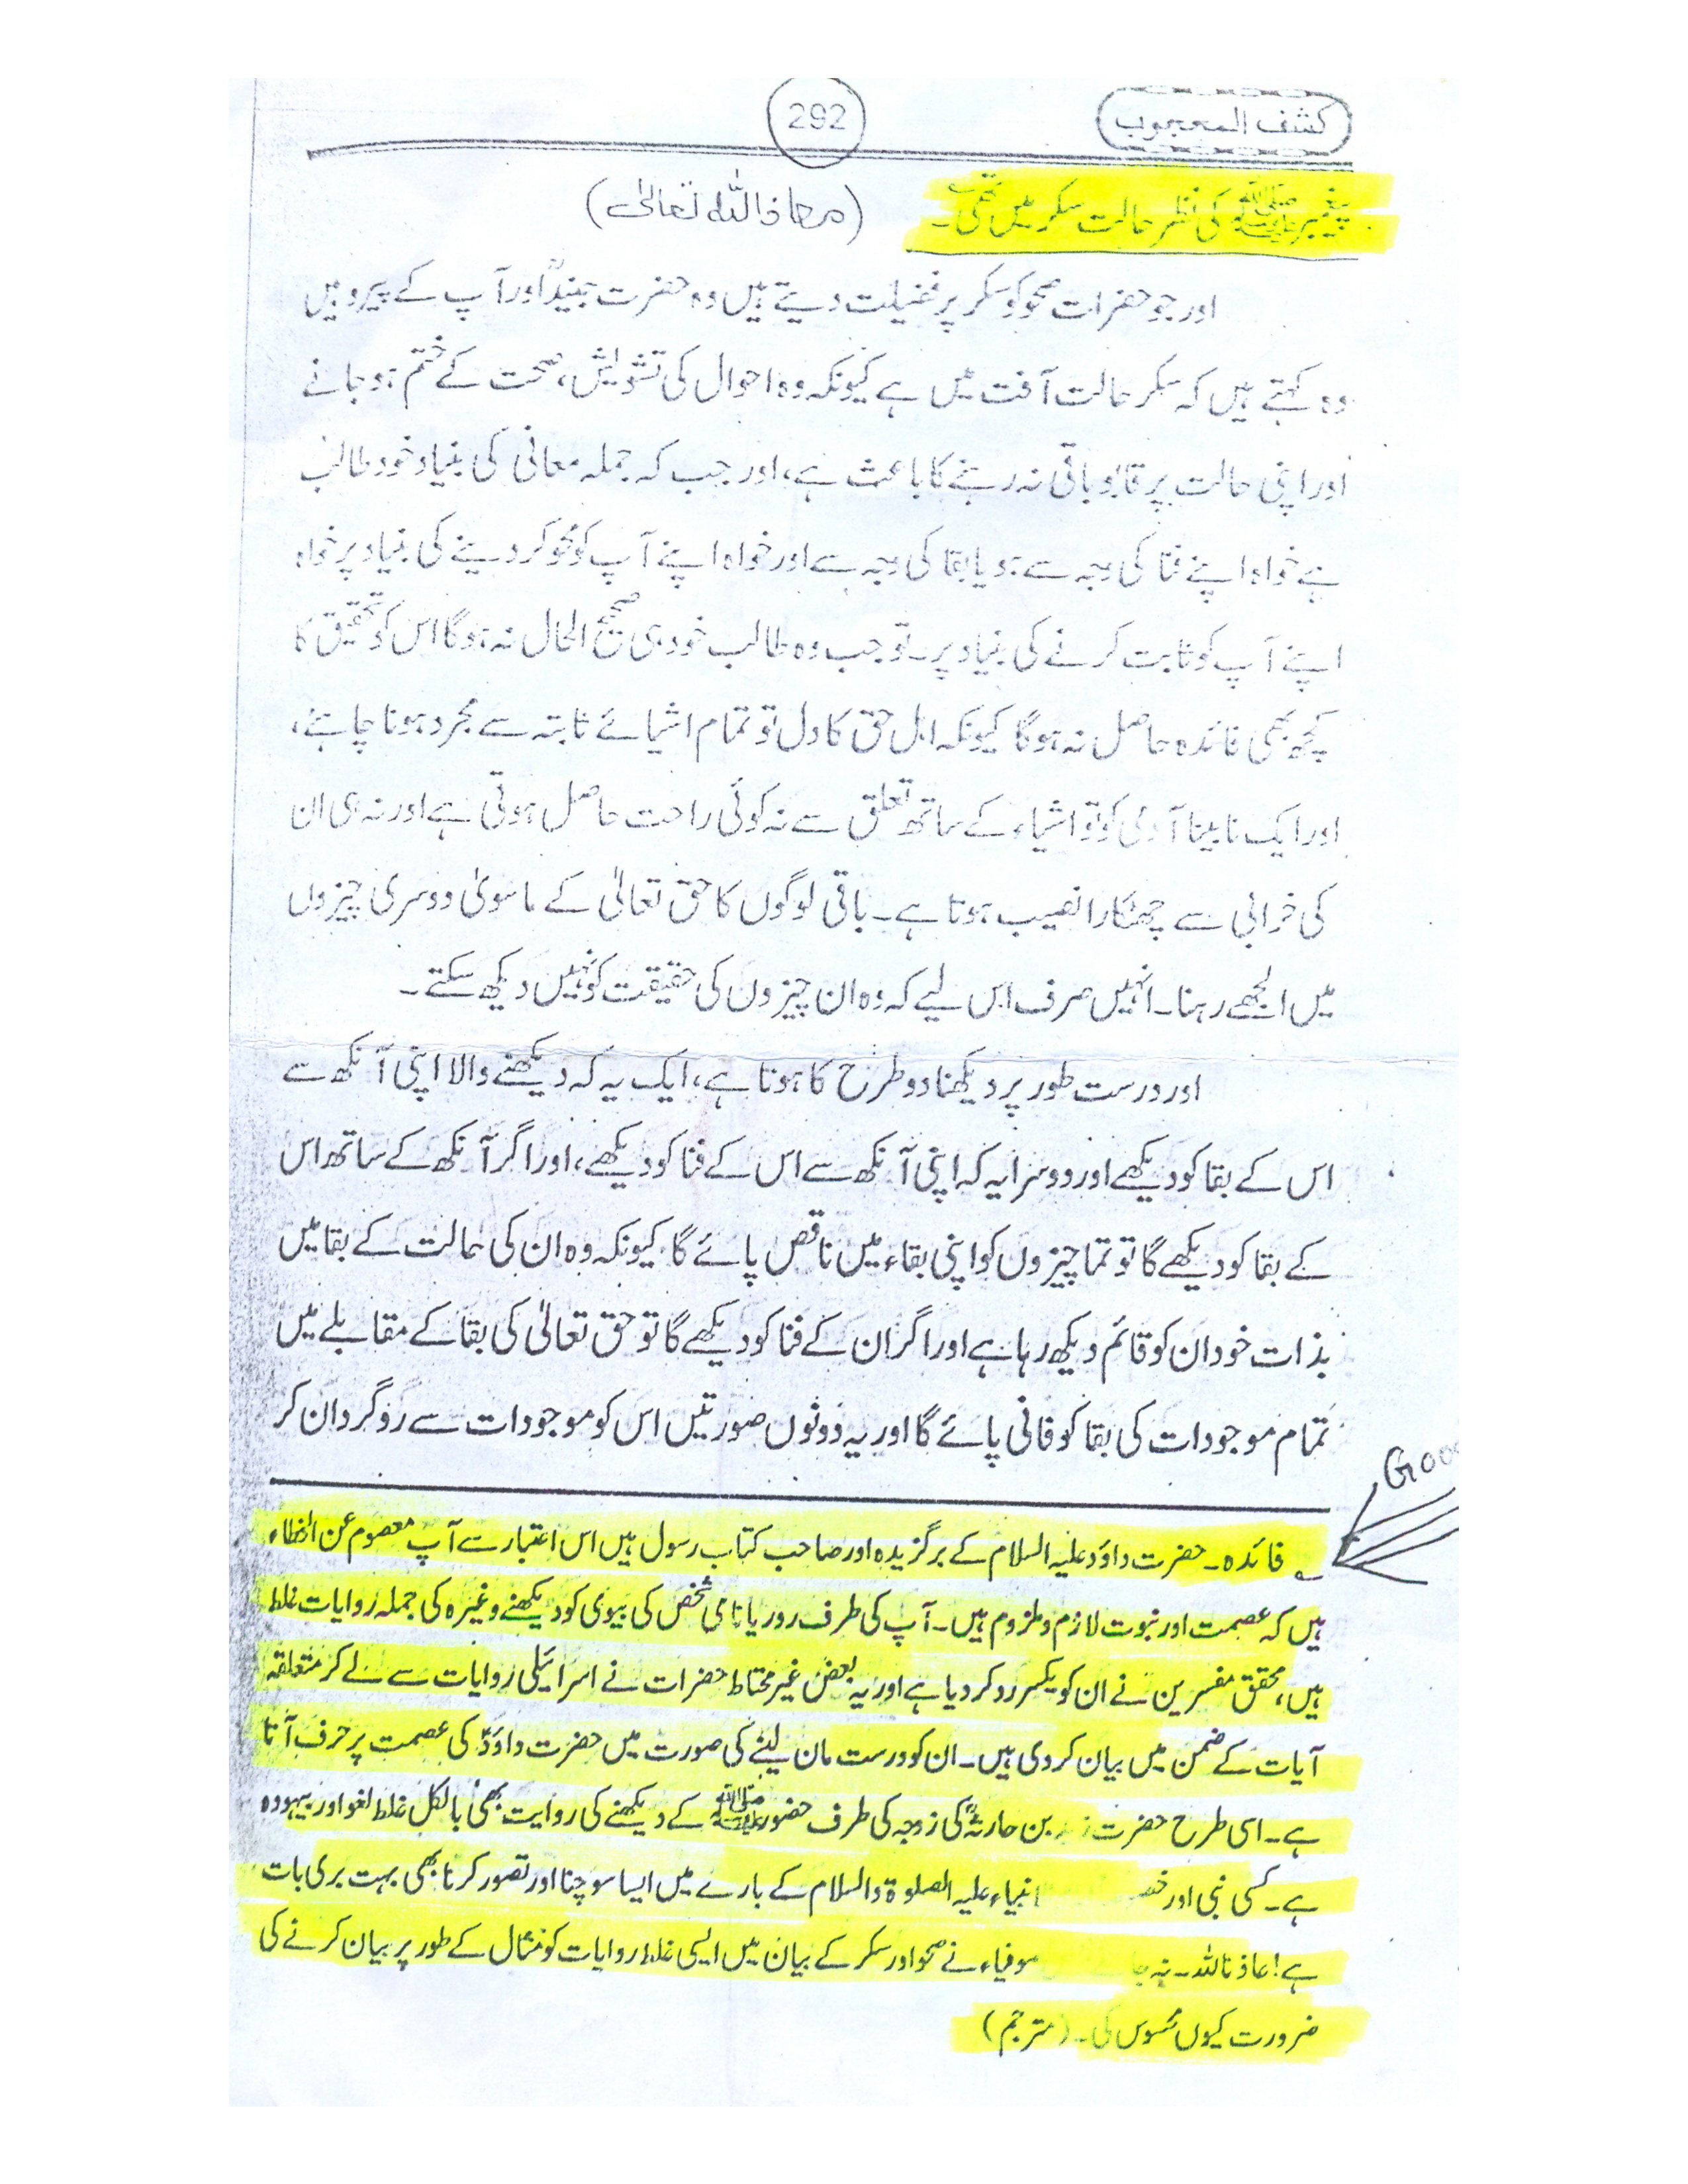 کشف المحجوب
292
پیغمبر ﷺ کی نظر حالت سکر میں تھی۔
(معاذ اللہ تعالیٰ)
اور جو حضرات صحو کو سکر پر فضیلت دیتے ہیں وہ حضرت جنیدؒ اور آپ کے پیرو ہیں
وہ کہتے ہیں کہ سکر حالت آفت میں ہے کیونکہ وہ احوال کی تشویش، صحت کے ختم ہو جانے
اور اپنی حالت پر قابو باقی نہ رہنے کا باعث ہے، اور جب کہ جملہ معانی کی بنیاد خود طالب
ہے خواہ اپنے فنا کی وجہ سے ہو یا بقا کی وجہ سے اور خواہ اپنے آپ کو محو کر دینے کی بنیاد پر خواہ
اپنے آپ کو ثابت کرنے کی بنیاد پر۔ تو جب وہ طالب خود ہی صحیح الحال نہ ہوگا اس کو تحقیق کا
کچھ بھی فائدہ حاصل نہ ہوگا کیونکہ اہل حق کا دل تو تمام اشیائے ثابتہ سے مجرد ہونا چاہئے،
اور ایک نابینا آدمی کو تو اشیاء کے ساتھ تعلق سے نہ کوئی راحت حاصل ہوتی ہے اور نہ ہی ان
کی خرابی سے چھٹکارا نصیب ہوتا ہے۔ باقی لوگوں کا حق تعالیٰ کے ماسویٰ دوسری چیزوں
میں الجھے رہنا۔ انہیں صرف اس لیے کہ وہ ان چیزوں کی حقیقت کو نہیں دیکھ سکتے۔
اور درست طور پر دیکھنا دو طرح کا ہوتا ہے، ایک یہ کہ دیکھنے والا اپنی آنکھ سے
اس کے بقا کو دیکھے اور دوسرا یہ کہ اپنی آنکھ سے اس کے فنا کو دیکھے، اور اگر آنکھ کے ساتھ اس
کے بقا کو دیکھے گا تو تما چیزوں کو اپنی بقاء میں ناقص پائے گا کیونکہ وہ ان کی حالت کے بقا میں
بذات خود ان کو قائم دیکھ رہا ہے اور اگر ان کے فنا کو دیکھے گا تو حق تعالیٰ کی بقا کے مقابلے میں
تمام موجودات کی بقا کو فانی پائے گا اور یہ دونوں صورتیں اس کو موجودات سے روگردان کر
فائدہ۔ حضرت داؤد علیہ السلام کے برگزیدہ اور صاحب کتاب رسول ہیں اس اعتبار سے آپ معصوم عن الخطاء
ہیں کہ عصمت اور نبوت لازم و ملزوم ہیں۔ آپ کی طرف روریا نامی شخص کی بیوی کو دیکھنے وغیرہ کی جملہ روایات غلط
ہیں، محقق مفسرین نے ان کو یکسر رد کر دیا ہے اور یہ بعض غیر محتاط حضرات نے اسرائیلی روایات سے لے کر متعلقہ
آیات کے ضمن میں بیان کر دی ہیں۔ ان کو درست مان لینے کی صورت میں حضرت داؤدؑ کی عصمت پر حرف آتا
ہے۔ اسی طرح حضرت بن حارثہؓ کی زوجہ کی طرف حضور ﷺ کے دیکھنے کی روایت بھی بالکل غلط لغو اور بیہودہ
ہے۔ کسی نبی اور انبیاء علیہ الصلوۃ والسلام کے بارے میں ایسا سوچنا اور تصور کرنا بھی بہت بری بات
ہے! عاذنا اللہ۔ نہ صوفیاء نے صحو اور سکر کے بیان میں ایسی غلط روایات کو مثال کے طور پر بیان کرنے کی
ضرورت کیوں محسوس کی۔ (مترجم)